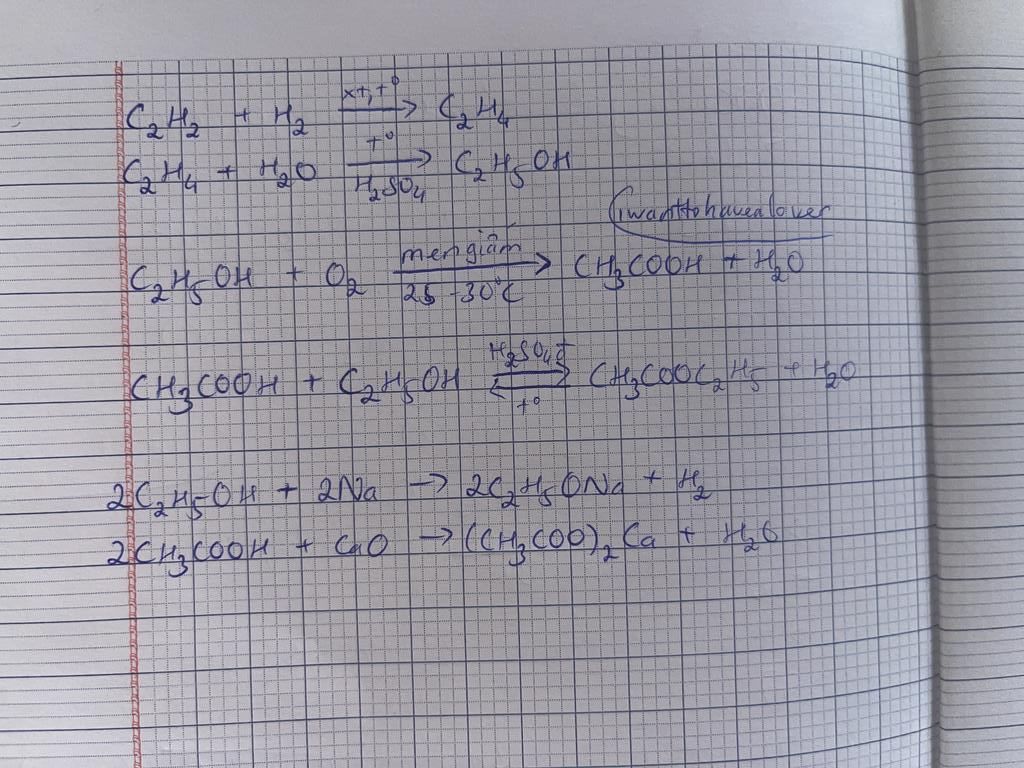 C₂H₂ + H₂ xt, t° → C₂H₄
C₂H₄ + H₂O t° → H₂SO₄ C₂H₅OH
iwanttohavealover
C₂H₅OH + O₂ men giấm → 25 - 30°C CH₃COOH + H₂O
CH₃COOH + C₂H₅OH H₂SO₄đ ⇌ t° CH₃COOC₂H₅ + H₂O
2C₂H₅OH + 2Na → 2C₂H₅ONa + H₂
2CH₃COOH + CaO → (CH₃COO)₂Ca + H₂O